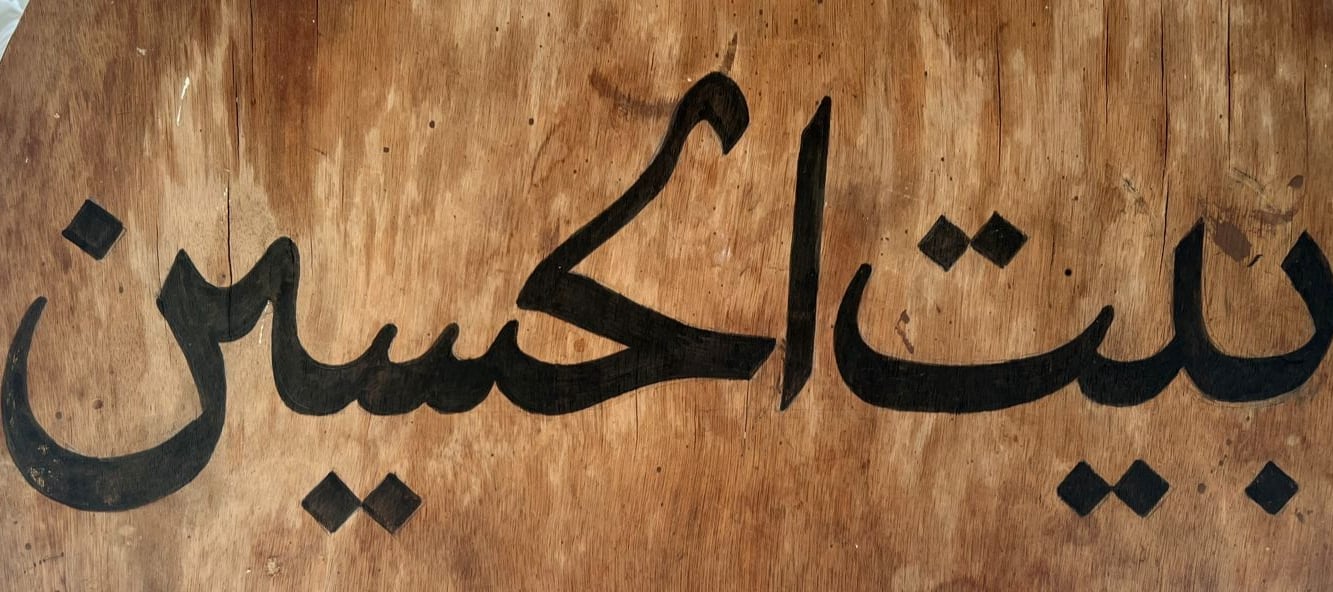 بيت الحسين